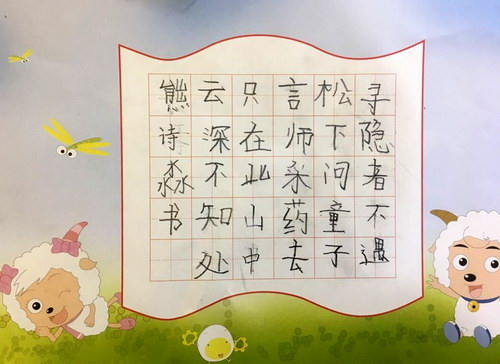 寻隐者不遇
松下问童子
言师采药去
只在此山中
云深不知处
熊诗淼书